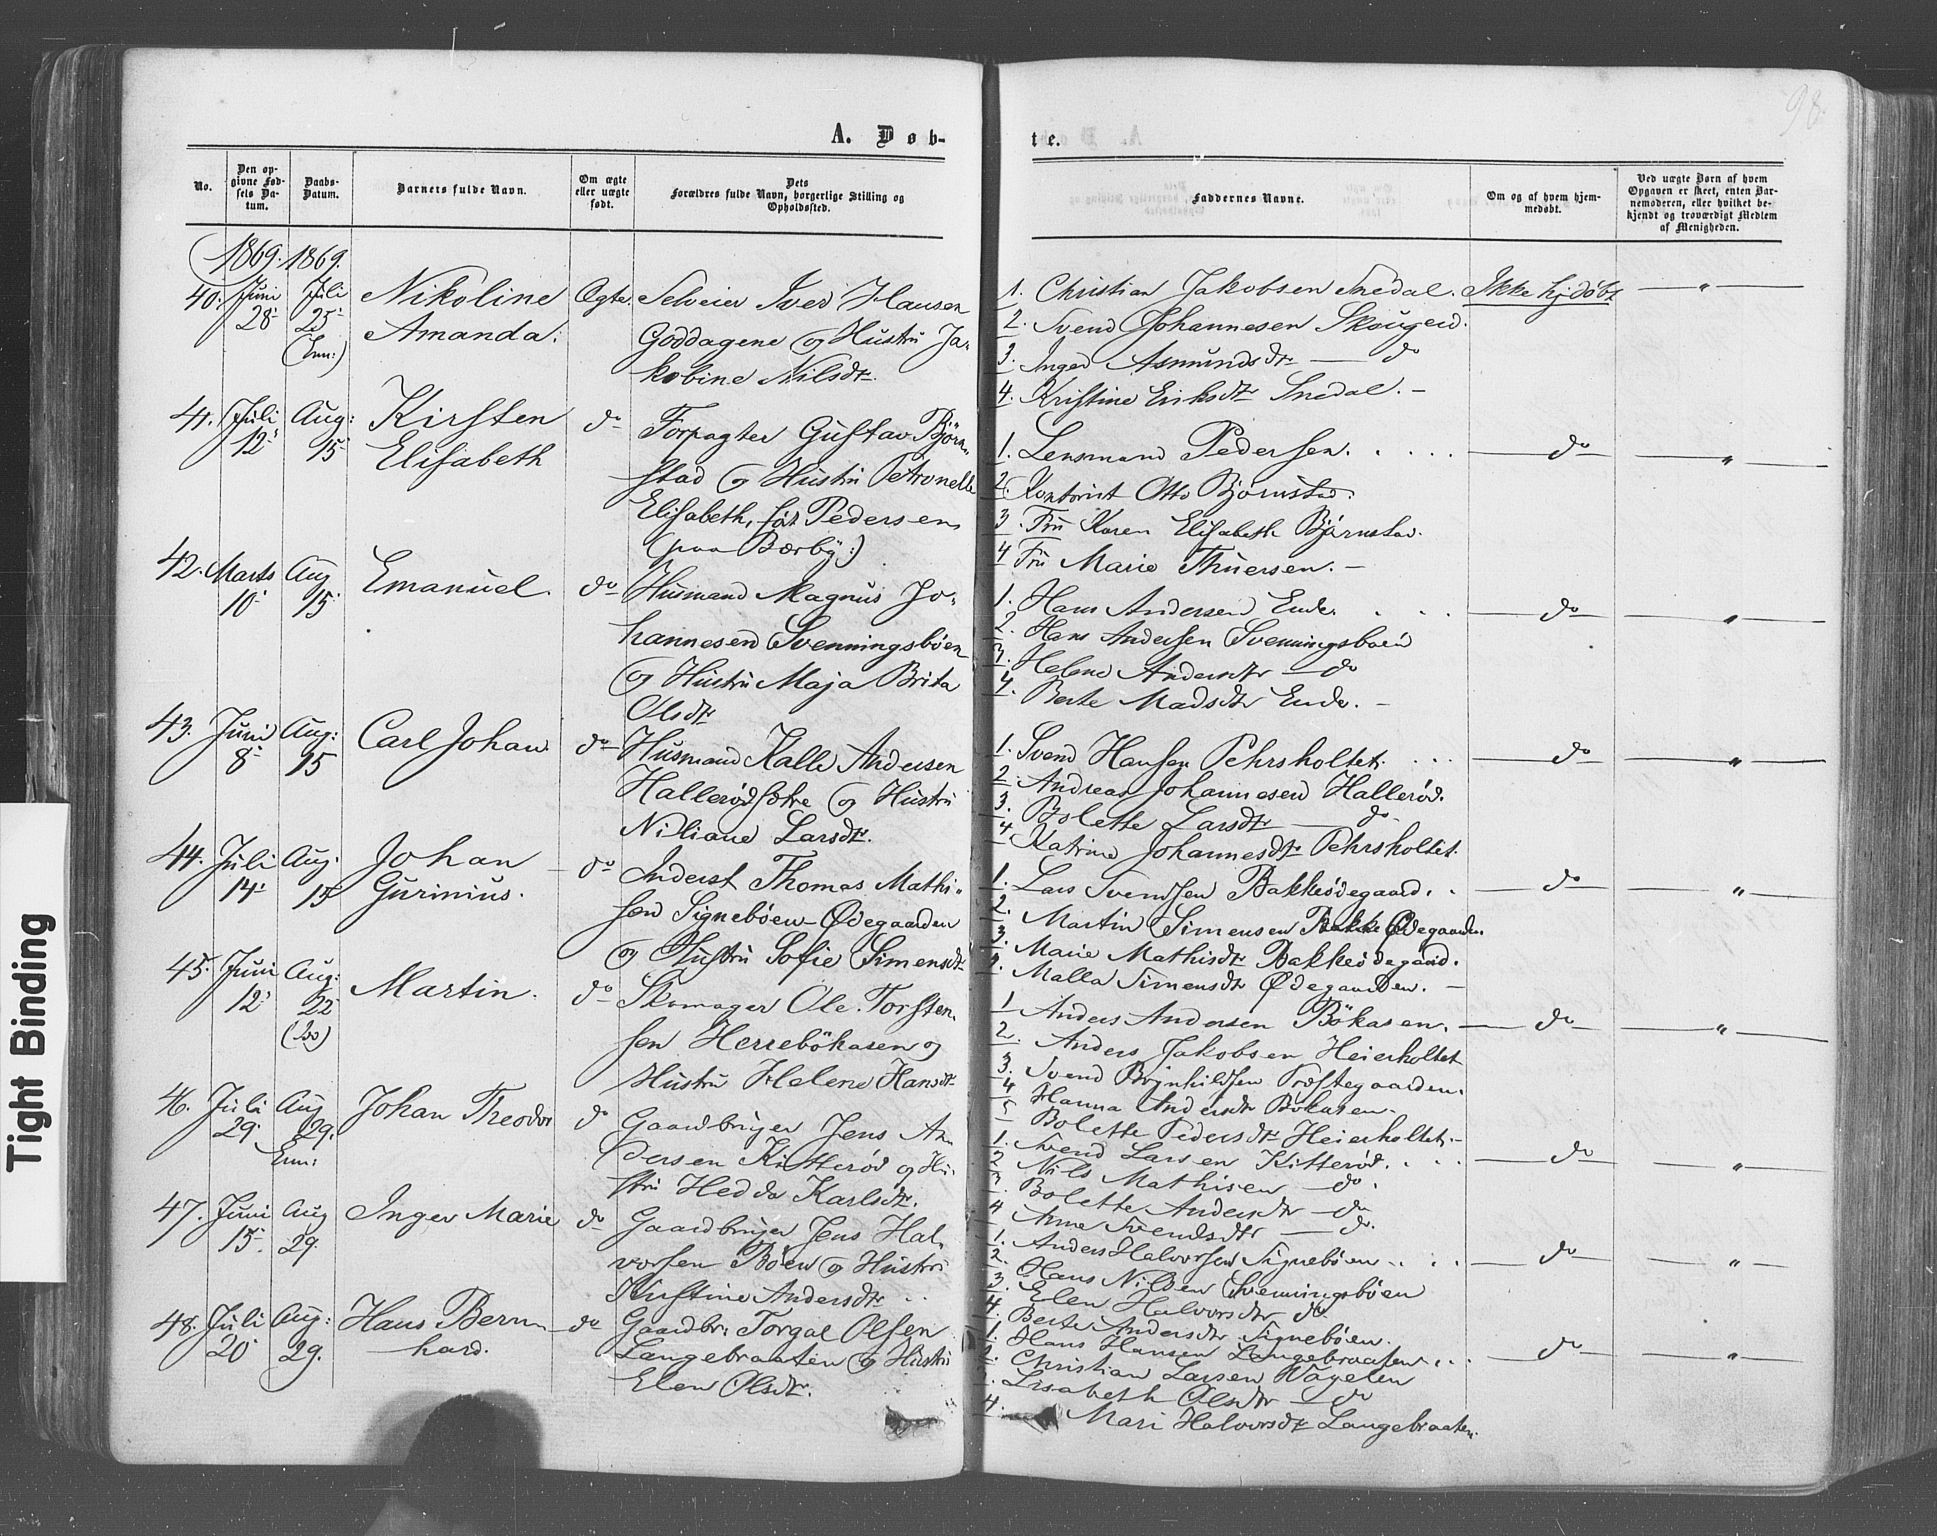 98.
A. Døb-
te.
No.
Den op-
givne Fød-
sels Da-
tum.
Daabs-
Datum.
Barnets fulde Navn.
Om ægte
eller uægte
født.
Dets
Forældres fulde Navn, borgerlige Stilling og
Opholdssted.
Faddernes Navne.
Om og af hvem hjem-
medøbt.
Ved uægte Børn af hvem
Opgaven er skeet, enten Bar-
nemoderen, eller hvilket be-
kjendt og troværdigt Medlem
af Menigheden.
1869. 1869.
40. Juni 28 Juli 25
Nikoline
Amanda.
Ægte
Selveier Iver Hansen
Goddagene og Hustru Ja-
kobine Nilsdtr.
1. Christian Jakobsen Snedal. Ikke hjdøbt
2. Svend Johannesen
3. Inger Asmundsdtr do
4. Kristine Eriksdtr Snedal.
41. Juli 12 Aug: 15
Kirsten
Elisabeth
do
Forpagter Gustav Bjørn-
stad og Hustru Petronelle
Elisabeth, født Pedersen,
(paa Bærby:)
1. Lensmand Pedersen. do
2. Kontorist Otto Bjørnstad.
3. Fru Karen Elisabeth Bjørnstad.
4 Fru Marie Thuersen.
42. Marts 10 Aug 15
Emanuel.
do
Husmand Magnus Jo-
hannesen Svenningsbøen
og Hustru Maja Brita
Olsdtr
1. Hans Andersen Ende. do
2. Hans Andersen Svenningsboen
3. Helene Andersdtr do
4. Berte Madsdtr Ende.
43. Juni 8 Aug: 15
Carl Johan.
do
Husmand Kalle Andersen
Hallerød og Hustru
Larsdtr.
1. Svend Hansen Pehrsholtet. do
2. Andreas Johannesen Hallerød.
3. Bolette Larsdtr do
4 Katrine Johannesdtr Pehrsholtet.
44. Juli 14 Aug. 15
Johan
Gurinius.
do
Inderst Thomas Mathi-
sen Signebøen-Ødegaarden
og Hustru Sofie Simensdtr
1. Lars Svendsen Bakkeødegaard. do
2. Martin Simensen Bakke Ødegaarden.
3. Marie Mathisdtr Bakkeødegaard.
4. Malla Simensdtr Ødegaarden.
45. Juni 12 Aug: 22
Martin.
do
Skomager Ole Torsten-
sen Herrebökasen og
Hustru Helene Hansdtr
1 Anders Andersen Bökasen. do
2. Anders Jakobsen Heierholtet
3. Svend Brynhildsen Præstegaarden.
4 Hanna Andersdtr Bökasen.
5 Bolette Pedersdtr Heierholtet.
46. Juli 29 Aug 29.
Johan Theodor
do
Gaardbruger Jens An-
dersen Kitterød og Hu-
stru Hedda Karlsdtr.
1. Svend Larsen Kitterød. do
2 Nils Mathisen do.
3. Bolette Andersdtr do
4 Anne Svendsdtr do.
47. Juni 15. Aug 29.
Inger Marie
do
Gaardbruger Jens Hal-
vorsen Böen og Hustru
Kristine Andersdtr
1. Anders Halvorsen Signebøen. do
2. Hans Nilsen Svenningsbøen
3. Elen Halvorsdtr do
4. Berte Andersdtr Signebøen.
48. Juli 20 Aug: 29.
Hans Bern-
hard.
do
Gaardbr: Torgal Olsen
Langebraaten og Hustru
Elen Olsdtr.
1. Hans Hansen Langebraaten. do
Christian Larsen
Lisabeth Olsdtr do
4. Mari Halvorsdtr Langebraaten.
Tight Binding